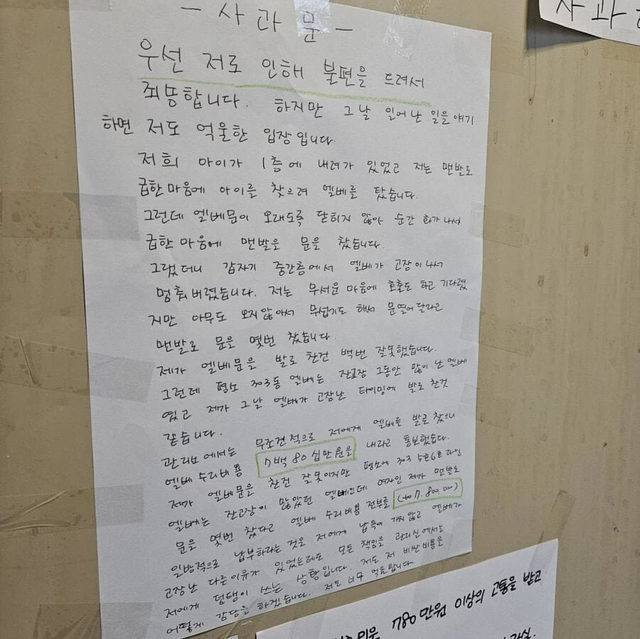 - 사 과 문 -
우선 저로 인해 불편을 드려서
죄송합니다. 하지만 그날 일어난 일을 얘기
하면 저도 억울한 입장입니다.
저희 아이가 1층에 내려가 있었고 저는 맨발로
급한마음에 아이를 찾으려 엘베를 탔습니다.
그런데 엘베문이 오래도록 닫히지 않아 순간 화가나서
급한 마음에 맨발로 문을 찼습니다.
그랬더니 갑자기 중간층에서 엘베가 고장이나서
멈춰버렸습니다. 저는 무서운 마음에 호출도 하고 기다렸
지만 아무도 오지않아서 무섭기도 해서 문열어달라고
맨발로 문을 몇번 찼습니다.
제가 엘베문을 발로 찬건 백번 잘못했습니다.
그런데 평소 303동 엘베는 잔고장 그동안 많이 난 엘베
였고 제가 그날 엘베가 고장난 타이밍에 발로 찬것
같습니다.
관리소에서는 무조건적으로 저에게 엘베를 발로 찼으니
엘베 수리비용 7백 80십만원을 내라고 통보했습니다.
제가 엘베문을 찬건 잘못이지만 평소에 303
엘베는 잔고장이 많았던 엘베인데 여자인 제가 맨발로
문을 몇번 찼다고 엘베 수리비용 전부를
일방적으로 납부하라는 것은 저에게 납득이 가지 않고 엘베가
고장난 다른이유가 있었는데도 모든 책임을 관리실에서는
저에게 덤탱이 쓰는 상황입니다. 저도 저 비싼비용을
어떻게 감당을 하겠습니다. 저도 너무 억울합니다
사과
780만원 이상의 고통을 받고